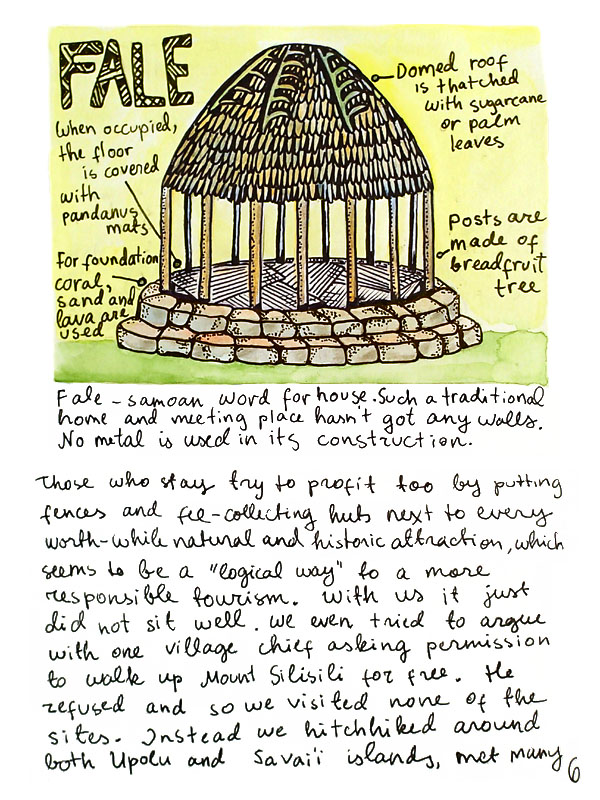 FALE
When occupied,
the floor
is covered
with
pandanus
mats
For foundation
coral,
sand and
lava are
used
Domed roof
is thatched
with sugarcane
or palm
leaves
posts are
made of
breadfruit
tree
Fale - samoan word for house. Such a traditional
home and meeting place hasn't got any walls.
No metal is used in its construction.
Those who stay try to profit too by putting
fences and fee-collecting huts next to every
worth-while natural and historic attraction, which
seems to be a "logical way" to a more
responsible tourism. With us it just
did not sit well. We even tried to argue
with one village chief asking permission
to walk up Mount Silisili for free. He
refused and so we visited none of the
sites. Instead we hitchhiked around
both Upolu and Savai'i islands, met many
6